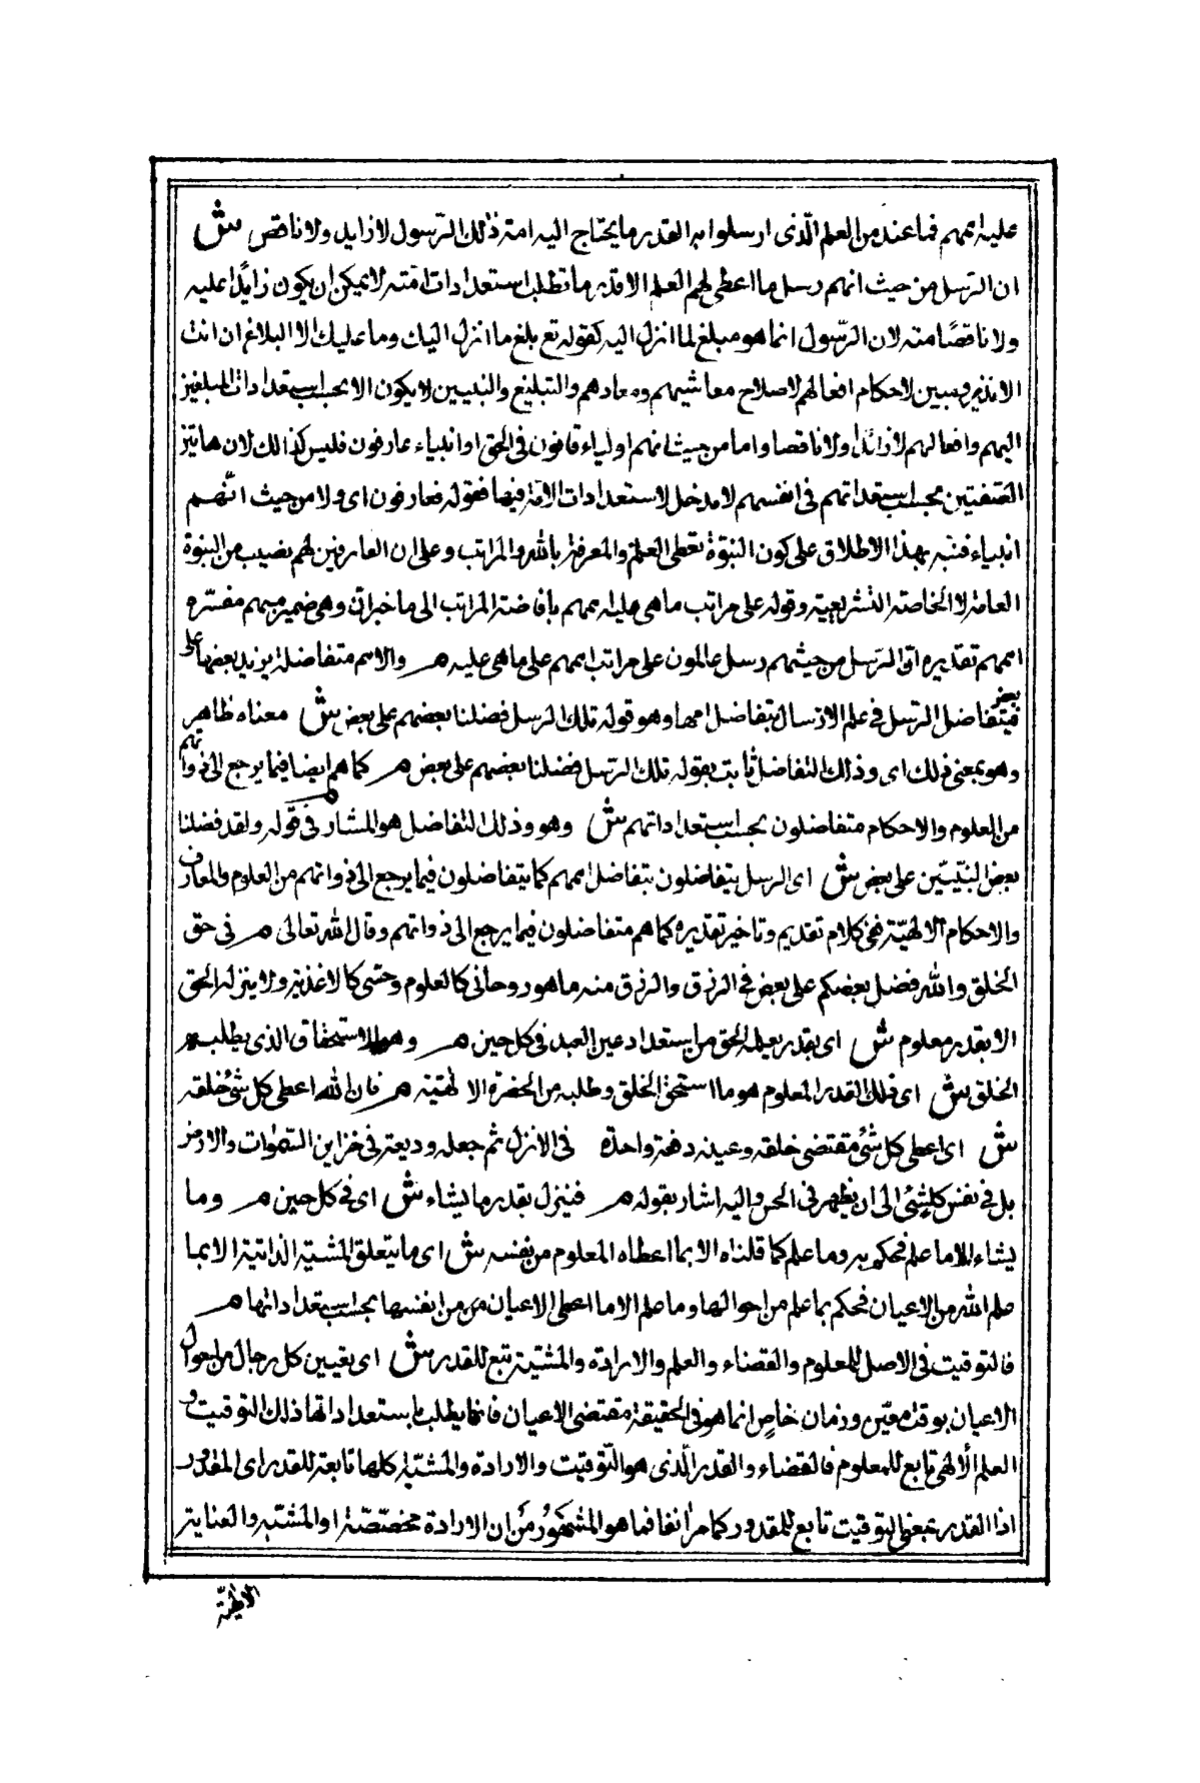 عليه اممهم فما عندهم من العلم الذى ارسلوا به القدر ما يحتاج اليه امة ذلك الرسول لا زايد ولا ناقص ش
ان الرسل من حيث انهم رسل ما اعطى لهم العلم الا قدر ما تطلب استعدادات امته لا يمكن ان يكون زايدا عليه
ولا ناقصا منه لان الرسول انما هو مبلغ لما انزل اليه كقوله تع بلغ ما انزل اليك وما عليك الا البلاغ ان انت
الا نذير ومبين لاحكام افعالهم لاصلاح معاشهم ومعادهم والتبليغ والتبيين لا يكون الا بحسب استعدادات المبلغين
اليهم وافعالهم لا زائدا ولا ناقصا واما من حيث انهم اولياء فانون فى الحق او انبياء عارفون فليس كذالك لان هاتين
الصفتين بحسب استعداداتهم فى انفسهم لا مدخل لاستعدادات الامة فيها فقوله فعارفون اى ولا من حيث انهم
انبياء فنبه بهذا الاطلاق على كون النبوة تعطى العلم والمعرفة بالله والمراتب وعلى ان العارفين لهم نصيب من النبوة
العامة لا الخاصة التشريعية وقوله على مراتب ما هى عليه اممهم باضافة المراتب الى ما خبران وهى ضمير مبهم مفسره
اممهم تقديره ان الرسل من حيث هم رسل عالمون على مراتب اممهم على ما هى عليه م والامم متفاضلة يزيد بعضها على
بعض فيتفاضل الرسل فى علم الارسال بتفاضل اممها وهو قوله تلك الرسل فضلنا بعضهم على بعض ش معناه ظاهر
وهو بمعنى ذلك اى وذلك التفاضل ثابت بقوله تلك الرسل فضلنا بعضهم على بعض م كما هم ايضا فيما يرجع الى ذواتهم
من العلوم والاحكام متفاضلون بحسب استعداداتهم ش وهو وذلك التفاضل هو المشار فى قوله ولقد فضلنا
بعض النبيين على بعض ش اى الرسل يتفاضلون بتفاضل اممهم كما يتفاضلون فيما يرجع الى ذواتهم من العلوم والمعارف
والاحكام الالهية ففى كلام تقديم وتاخير تقديره كما هم متفاضلون فيما يرجع الى ذواتهم وقال الله تعالى م فى حق
الخلق والله فضل بعضكم على بعض فى الرزق والرزق منه ما هو روحانى كالعلوم وحسى كالاغذية ولا ينزله الحق
الا بقدر معلوم ش اى بقدر يعلمه الحق من استعداد عين العبد فى كل حين م وهو الاستحقاق الذى يطلبه
الخلق ش اى ذلك القدر المعلوم هو ما استحق الخلق وطلبه من الحضرة الالهية م فان الله اعطى كل شئ خلقه
ش اى اعطى كل شئ مقتضى خلقه وعينه دفعة واحدة فى الازل ثم جعله وديعة فى خزاين السموات والارض
بل فى نفس كل شئ الى ان يظهر فى الحس واليه اشار بقوله م فينزل بقدر ما يشاء ش اى فى كل حين م وما
يشاء الا ما علم فحكم به وما علم كما قلناه الا بما اعطاه المعلوم من نفسه ش اى ما يتعلق المشية الذاتية الا بما
علم الله من الاعيان فحكم بما علم من احوالها وما علم الا ما اعطى الاعيان من انفسها بحسب استعداداتها م
فالتوقيت فى الاصل للمعلوم والقضاء والعلم والارادة والمشية تبع للقدر ش اى تعيين كل رجال من احوال
الاعيان بوقت معين وزمان خاص انما هو فى الحقيقة مقتضى الاعيان فانها يطلب باستعداداتها ذلك التوقيت و
العلم الالهى تابع للمعلوم فالقضاء والقدر الذى هو التوقيت والارادة والمشية كلها تابعة للقدر اى المقدور
اذا القدر بمعنى التوقيت تابع للمقدور كما مر انفا فما هو المشهور من ان الارادة مخصصة او المشية والعناية
الالهية